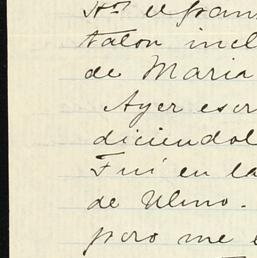 talon incl
de Maria
Ayer escr
diciendol
Fui en la
de Ulmo.
pero me e